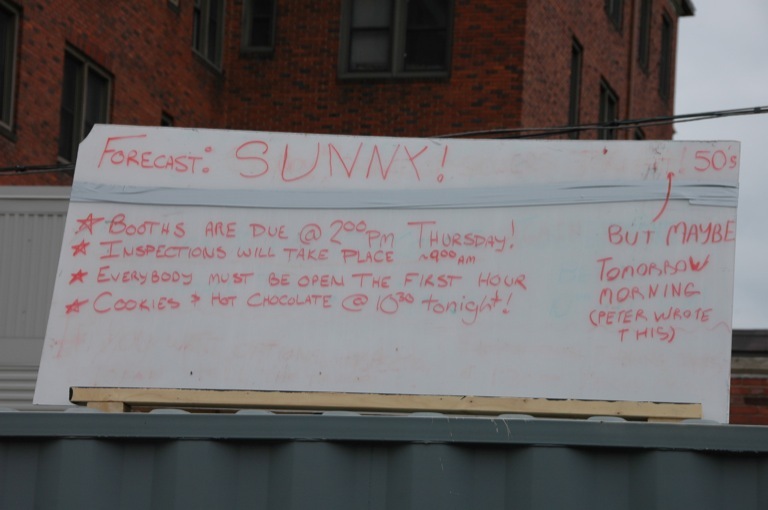 FORECAST: SUNNY! ! 50's
★ BOOTHS ARE DUE @ 2:00 PM THURSDAY!
★ INSPECTIONS WILL TAKE PLACE ~9:00 AM
★ EVERYBODY MUST BE OPEN THE FIRST HOUR
★ COOKIES & HOT CHOCOLATE @ 10:30 tonight!
BUT MAYBE
TOMORROW
MORNING
(PETER WROTE
THIS)